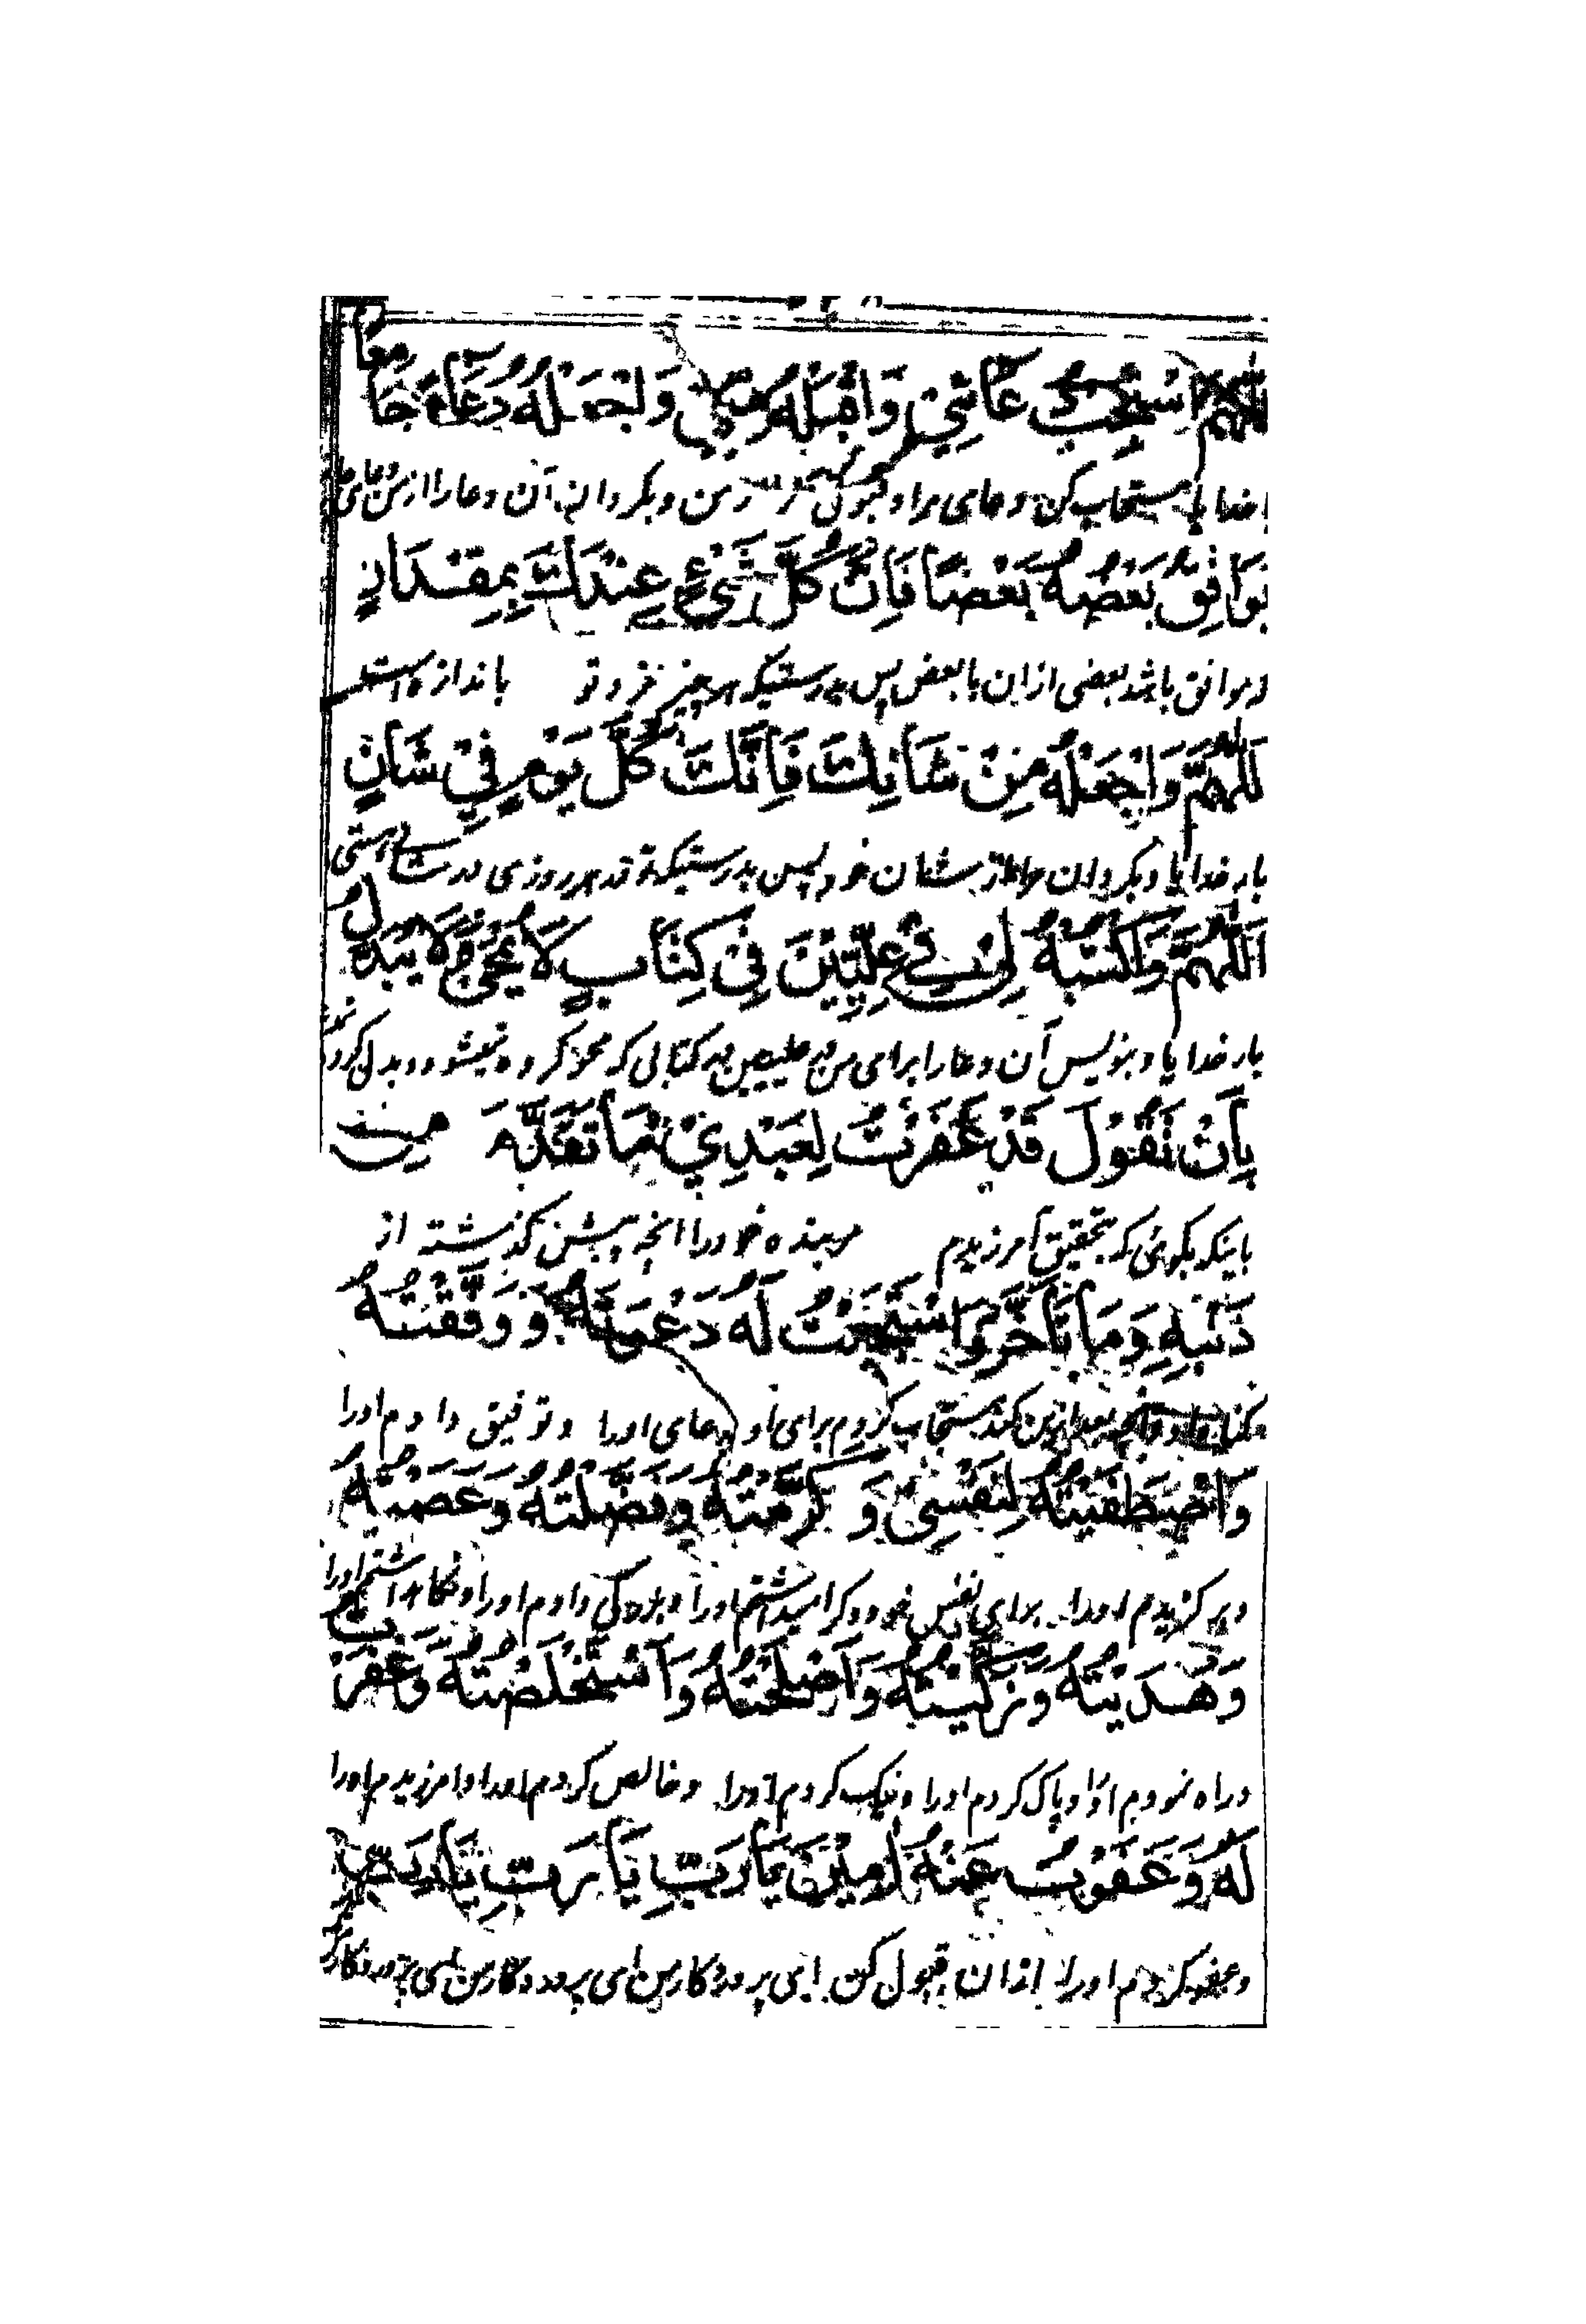 اَللّٰهُمَّ اسْتَجِبْ دُعَائِيْ وَاقْبَلْهُ مِنِّيْ وَاجْعَلْهُ دُعَاءً جَامِعًا
خدایا مستجاب کن دعای مرا و قبول کن از من و بگردان آن دعا را از من
يُوَافِقُ بَعْضُهُ بَعْضًا فَاِنَّ كُلَّ شَيْءٍ عِنْدَكَ بِمِقْدَارٍ
و موافق باشد بعضی ازان با بعض پس بدرستیکه هر چیز نزد تو باندازه است
اَللّٰهُمَّ وَاجْعَلْهُ مِنْ شَانِكَ فَاِنَّكَ كُلَّ يَوْمٍ فِيْ شَانٍ
بار خدایا و بگردان از شان خود پس بدرستیکه تو هر روزی در شان هستی
اَللّٰهُمَّ وَاكْتُبْهُ لِيْ فِيْ عِلِّيِّيْنَ فِيْ كِتَابٍ لَا يُمْحٰى وَلَا يُبَدَّلُ
بار خدایا و بنویس آن دعا را برای من در علیین در کتابی که محو کرده نمیشود و بدل کرده
بِاَنْ تَقُوْلَ قَدْ غَفَرْتُ لِعَبْدِيْ مَا تَقَدَّمَ مِنْ
باینکه بگوئی که بتحقیق آمرزیدم مر بنده خود را آنچه پیش گذشته از
ذَنْبِهِ وَمَا تَاَخَّرَ وَاسْتَجَبْتُ لَهُ دَعْوَتَهُ وَ وَفَّقْتُهُ
مستجاب کردم برای او دعای او را و توفیق دادم او را
وَاصْطَفَيْتُهُ لِنَفْسِيْ وَ كَرَّمْتُهُ وَفَضَّلْتُهُ وَعَصَمْتُهُ
و برگزیدم او را برای نفس خود و گرامی داشتم او را و بزرگی دادم او را و نگاه داشتم او را
وَهَدَيْتُهُ وَزَكَّيْتُهُ وَاَصْلَحْتُهُ وَاسْتَخْلَصْتُهُ وَغَفَرْتُ
و راه نمودم او را و پاک کردم او را و نیک کردم او را و خالص کردم او را و آمرزیدم او را
لَهُ وَعَفَوْتُ عَنْهُ اٰمِيْنَ يَارَبِّ يَا رَبِّ يَارَبِّ
و عفو کردم او را ازان قبول کن ای پروردگار من ای پروردگار من ای پروردگار